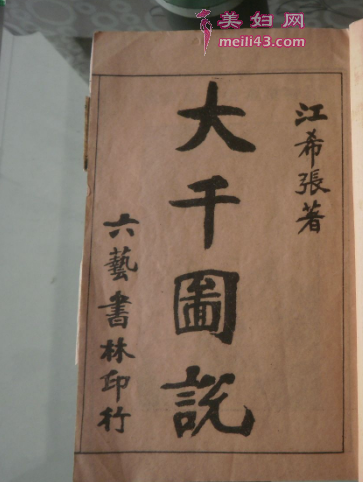 美妇网
meili43.com
江希張著
大千圖説
六藝書林印行